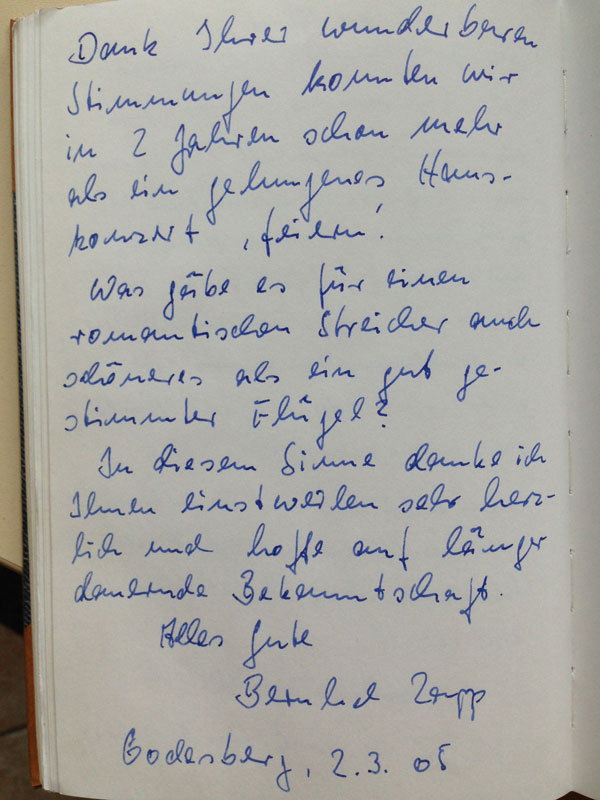 Dank Ihrer wunderbaren
Stimmungen konnten wir
in 2 Jahren schon mehr
als ein gelungenes Haus-
konzert 'feiern'.
Was gäbe es für einen
romantischen Streicher auch
schöneres als ein gut ge-
stimmter Flügel?
In diesem Sinne danke ich
Ihnen einstweilen sehr herz-
lich und hoffe auf länger
dauernde Bekanntschaft.
Alles Gute
Godesberg, 2.3.05